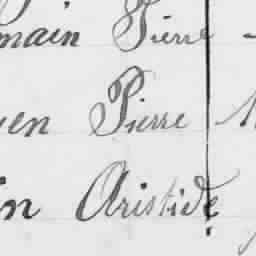 main Pierre
en Pierre
in Aristide